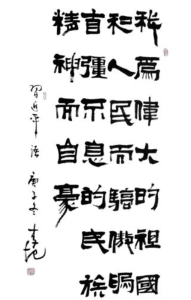 我為偉大的祖國
和人民而驕傲為
自彊不息的民族
精神而自豪
習近平語 庚子冬